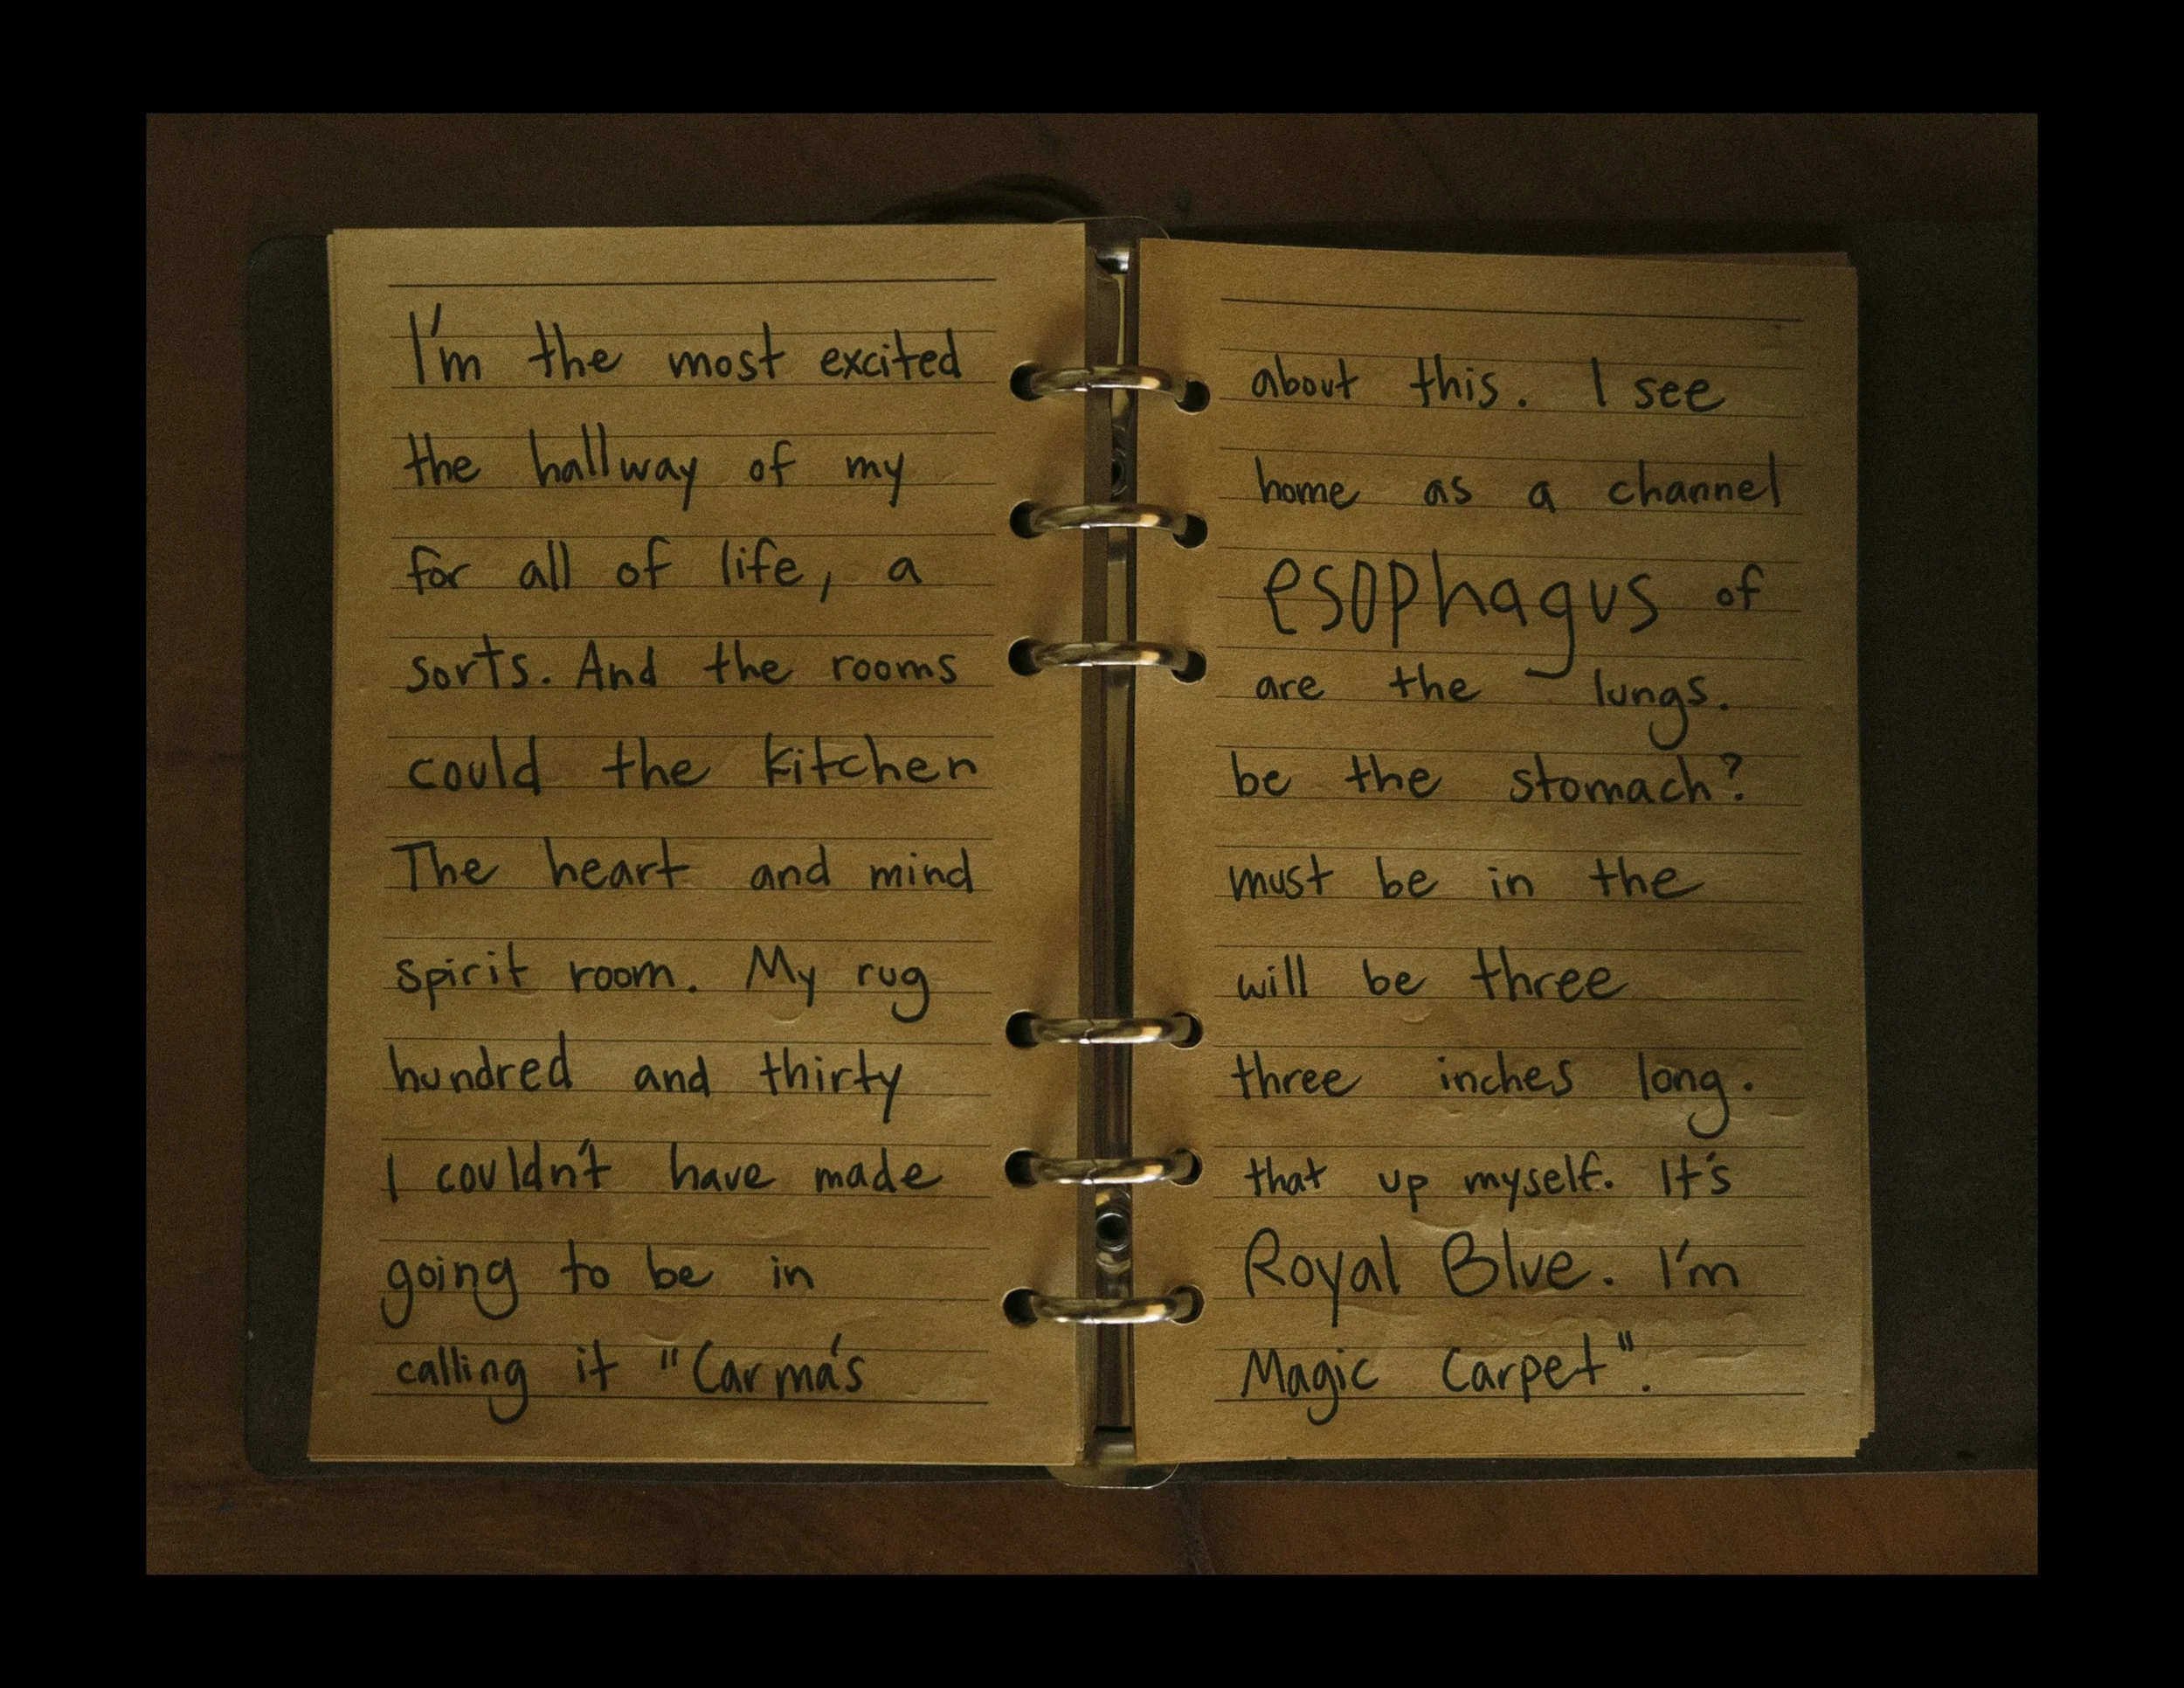 I'm the most excited about this. I see
the hallway of my home as a channel
for all of life, a esophagus of
sorts. And the rooms are the lungs.
could the kitchen be the stomach?
The heart and mind must be in the
spirit room. My rug will be three
hundred and thirty three inches long.
I couldn't have made that up myself. It's
going to be in Royal Blue. I'm
calling it "Carma's Magic Carpet".